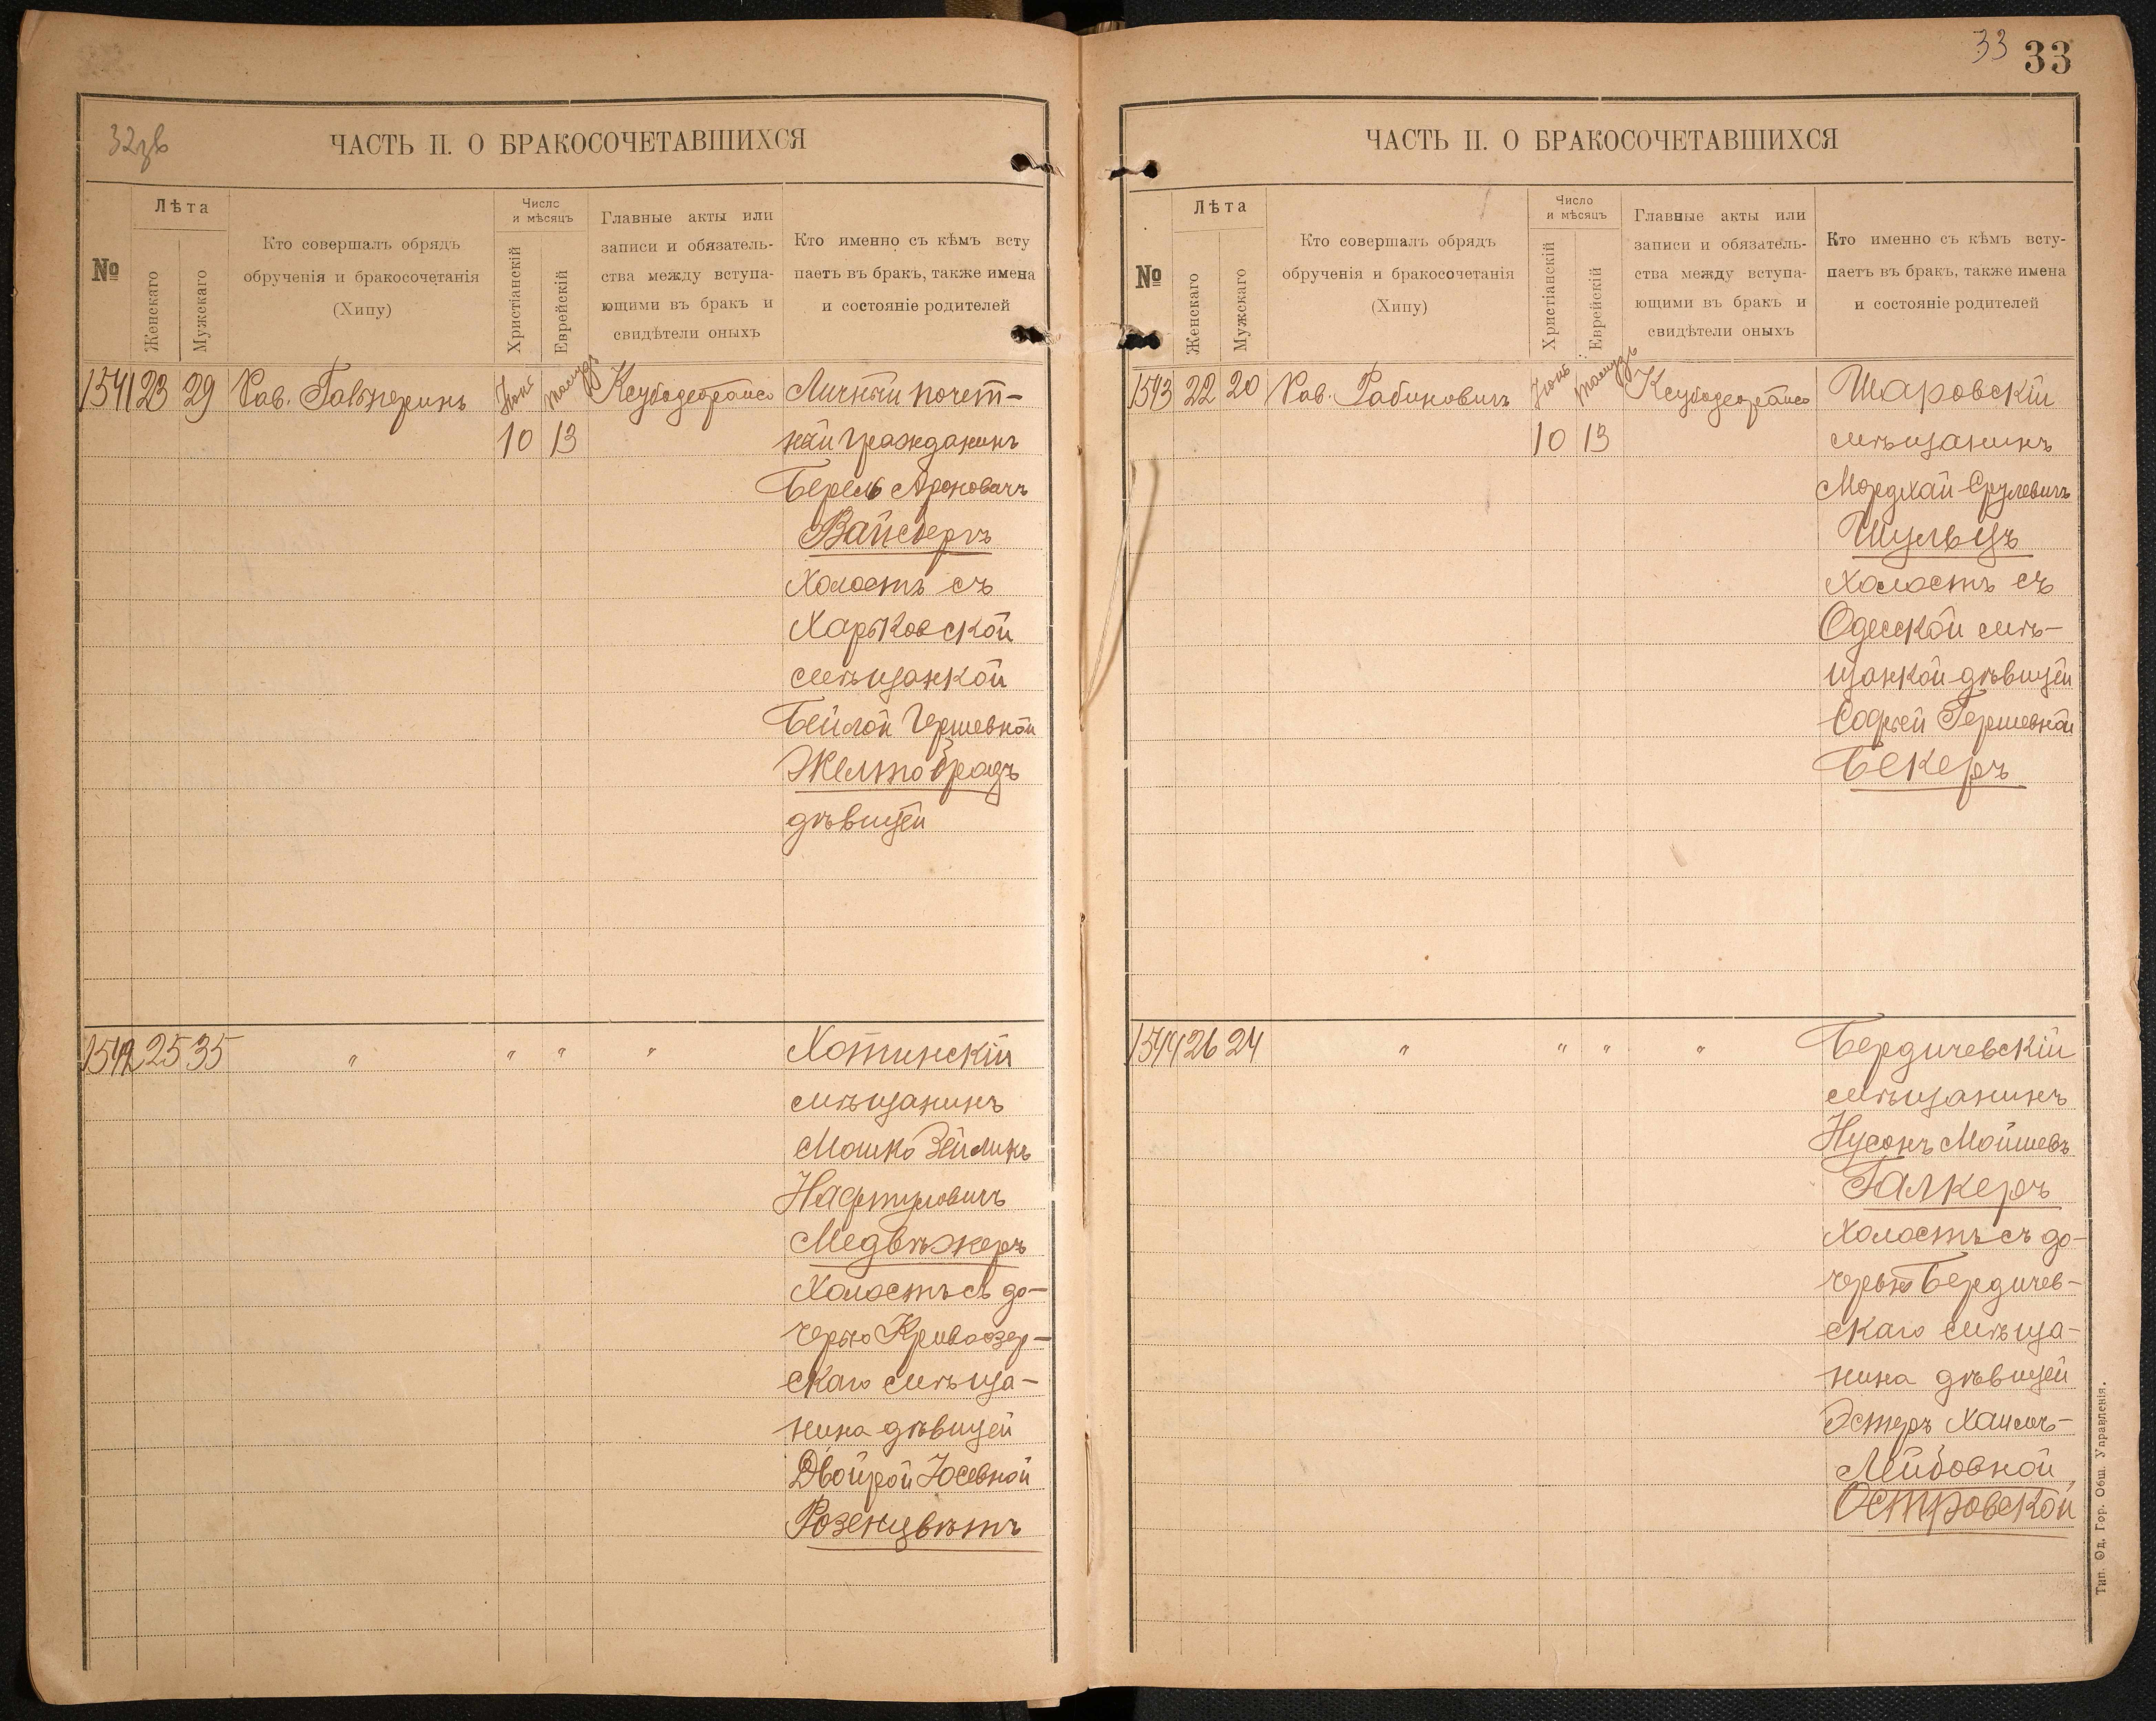 32зв
ЧАСТЬ II. О БРАКОСОЧЕТАВШИХСЯ
№
Лѣта
Женскаго
Мужскаго
Кто совершалъ обрядъ
обрученія и бракосочетанія
(Хипу)
Число
и мѣсяцъ
Христіанскій
Еврейскій
Главные акты или
записи и обязатель-
ства между вступа-
ющими въ бракъ и
свидѣтели оныхъ
Кто именно съ кѣмъ всту
паетъ въ бракъ, также имена
и состояніе родителей
1541 23 29 Рав. Гальперинъ Іюнь
10 13
Личный почет-
ный гражданинъ
Берель Ароновичъ
Вайсбергъ
холостъ съ
Харьковской
мѣщанкой
Бейлой Гершевной
Желтобродъ
дѣвицей
1542 25 35 " " " " Хотинскій
мѣщанинъ
Мошко Зейликъ
Нафтуловичъ
Медвѣжеръ
холостъ съ до-
черью Кривоозер-
скаго мѣща-
нина дѣвицей
Двойрой Юсевной
Розенцвѣтъ
33 33
ЧАСТЬ II. О БРАКОСОЧЕТАВШИХСЯ
№
Лѣта
Женскаго
Мужскаго
Кто совершалъ обрядъ
обрученія и бракосочетанія
(Хипу)
Число
и мѣсяцъ
Христіанскій
Еврейскій
Главные акты или
записи и обязатель-
ства между вступа-
ющими въ бракъ и
свидѣтели оныхъ
Кто именно съ кѣмъ всту-
паетъ въ бракъ, также имена
и состояніе родителей
1543 22 20 Рав. Рабиновичъ Іюнь
10 13
Шаровскій
мѣщанинъ
Мордхай Срулевичъ
Шульцъ
холостъ съ
Одесской мѣ-
щанкой дѣвицей
Софьей Гершевной
Бекеръ
1544 26 24 " " " " Бердичевскій
мѣщанинъ
Нусонъ Мойшевъ
Галкеръ
холостъ съ до-
черью Бердичев-
скаго мѣща-
нина дѣвицей
Эстеръ Хаимъ-
Лейбовной
Островской
Тип. Од. Гор. Общ. Управленія.